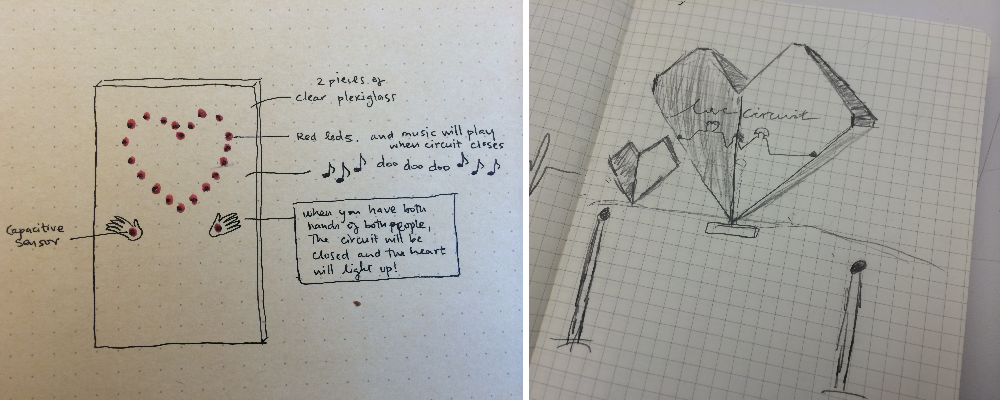 2 pieces of
clear plexiglass
Red leds. and music will play
when circuit closes
doo doo doo
Capacitive
Sensor
when you have both
hands of both people,
The circuit will be
closed and the heart
will light up!
Love circuit